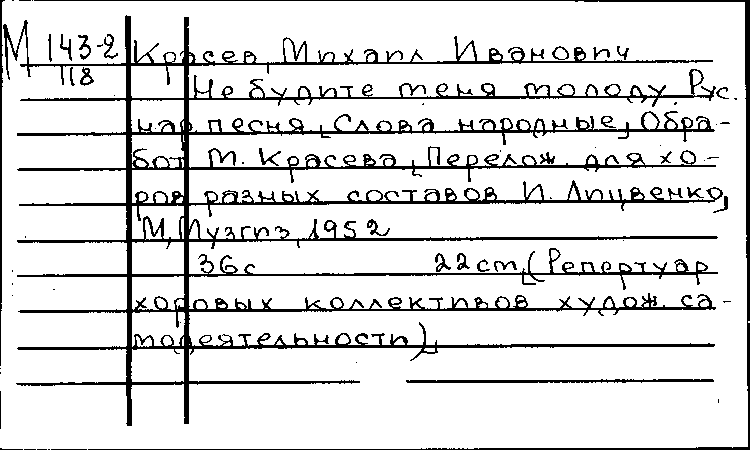 М 143-2
118
Красев, Михаил Иванович
Не будите меня молоду. Рус.
нар. песня, Слова народные, Обра-
бот М. Красева, Перелож. для хо-
ров разных составов И. Лицвенко,
М, Музгиз, 1952
36с 22cm, (Репертуар
хоровых коллективов худож. са-
модеятельности),